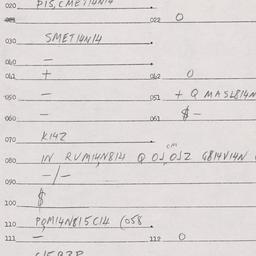 020 P15, CMET14N14
021 022 0
030 SMET14N14
040 —
041 + 042 0
050 — 051 + Q MASL814N
060 — 061 $ —
070 K14Z
080 IN RVM14N814 Q OJ OJZ G814V14N
090 —/—
100 $
110 PQM14N815C14 (058
111 — 112 0